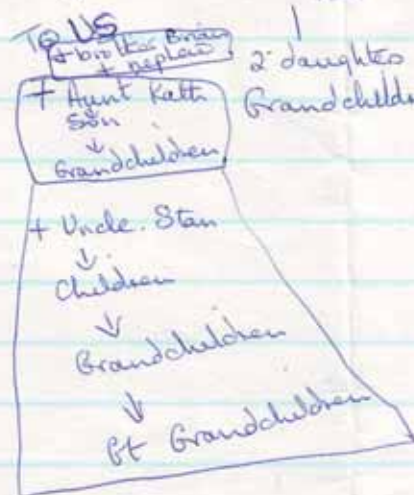 To US
+ brother Brian
+ nephew
2 daughters
Grandchildre
+ Aunt Kath
Son
↓
Grandchildren
+ Uncle. Stan
↓
Children
↓
Grandchildren
↓
Gt Grandchildren